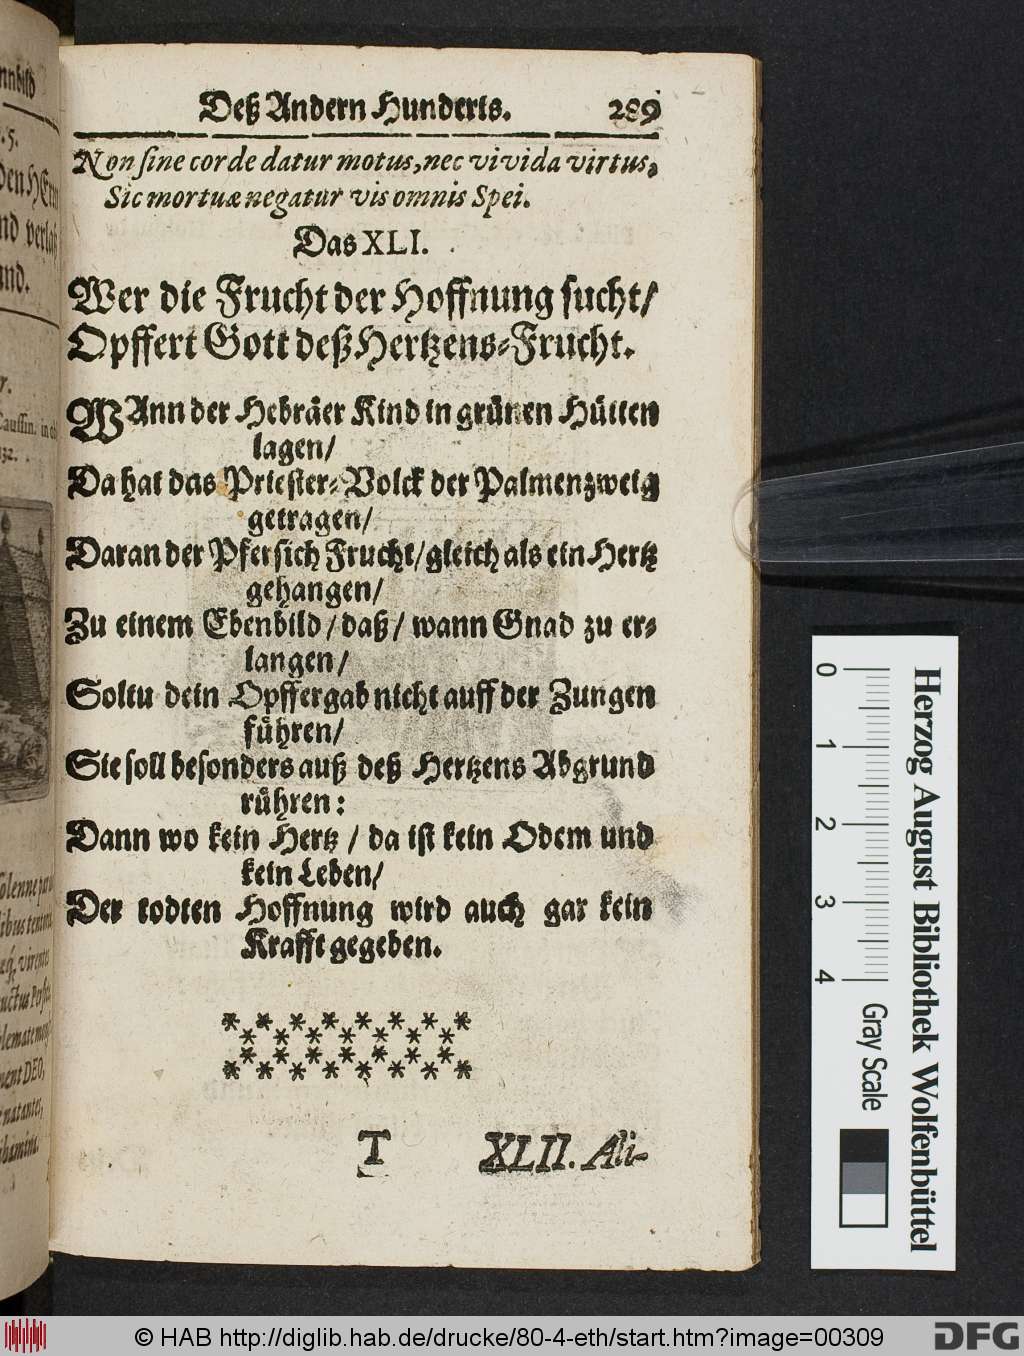 Deß Andern Hunderts. 289
Non sine corde datur motus, nec vivida virtus,
Sic mortuæ negatur vis omnis Spei.
Das XLI.
Wer die Frucht der Hoffnung sucht/
Opffert Gott deß Hertzens-Frucht.
WAnn der Hebräer Kind in grünen Hütten
lagen/
Da hat das Priester-Volck der Palmenzweig
getragen/
Daran der Pfersich Frucht/ gleich als ein Hertz
gehangen/
Zu einem Ebenbild/ daß/ wann Gnad zu er-
langen/
Soltu dein Opffergab nicht auff der Zungen
führen/
Sie soll besonders auß deß Hertzens Abgrund
rühren:
Dann wo kein Hertz/ da ist kein Odem und
kein Leben/
Der todten Hoffnung wird auch gar kein
Krafft gegeben.
T XLII. Ali-
Herzog August Bibliothek Wolfenbüttel
0 1 2 3 4
Gray Scale
© HAB http://diglib.hab.de/drucke/80-4-eth/start.htm?image=00309
DFG